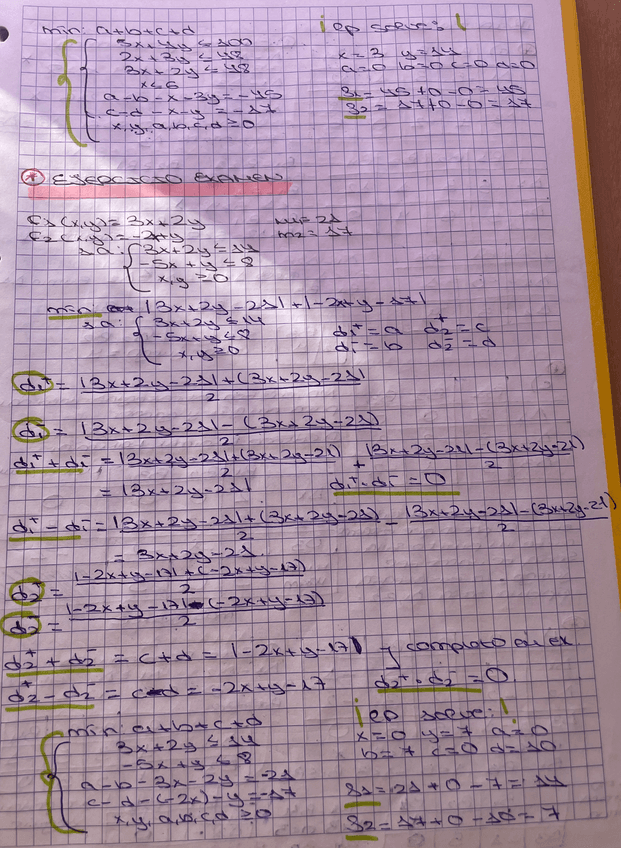 min: a+b+c+d
5x+4y ≤ 100
2x+3y ≤ 48
3x+2y ≤ 48
x ≤ 6
a-b-x-3y = -45
c-d-x-y = -17
x,y,a,b,c,d ≥ 0
¡ ep solve: !
x=3 y=14
a=0 b=0 c=0 d=0
S1 = 45+0-0 = 45
S2 = 17+0-0 = 17
* EJERCICIO EXAMEN
f1(x,y) = 3x+2y m1 = 21
f2(x,y) = -2x+y m2 = 17
sa: 3x+2y ≤ 14
-5x+y ≤ 8
x,y ≥ 0
min: |3x+2y-21| + |-2x+y-17|
sa: 3x+2y ≤ 14
-5x+y ≤ 8
x,y ≥ 0
d1⁺ = a d2⁺ = c
d1⁻ = b d2⁻ = d
d1⁺ = |3x+2y-21|+(3x+2y-21)
2
d1⁻ = |3x+2y-21|-(3x+2y-21)
2
d1⁺ + d1⁻ = |3x+2y-21|+(3x+2y-21) + |3x+2y-21|-(3x+2y-21)
2 2
= |3x+2y-21| d1⁺·d1⁻ = 0
d1⁺ - d1⁻ = |3x+2y-21|+(3x+2y-21) - |3x+2y-21|-(3x+2y-21)
2 2
= 3x+2y-21
d2⁺ = |-2x+y-17|+(-2x+y-17)
2
d2⁻ = |-2x+y-17|-(-2x+y-17)
2
d2⁺ + d2⁻ = c+d = |-2x+y-17| y completo en ex.
d2⁺ - d2⁻ = c-d = -2x+y-17 d2⁺·d2⁻ = 0
min: a+b+c+d
3x+2y ≤ 14
-5x+y ≤ 8
a-b-3x-2y = -21
c-d-(-2x)-y = -17
x,y,a,b,c,d ≥ 0
¡ ep solve: !
x=0 y=7 a=0
b=7 c=0 d=10
S1 = 21+0-7 = 14
S2 = 17+0-10 = 7